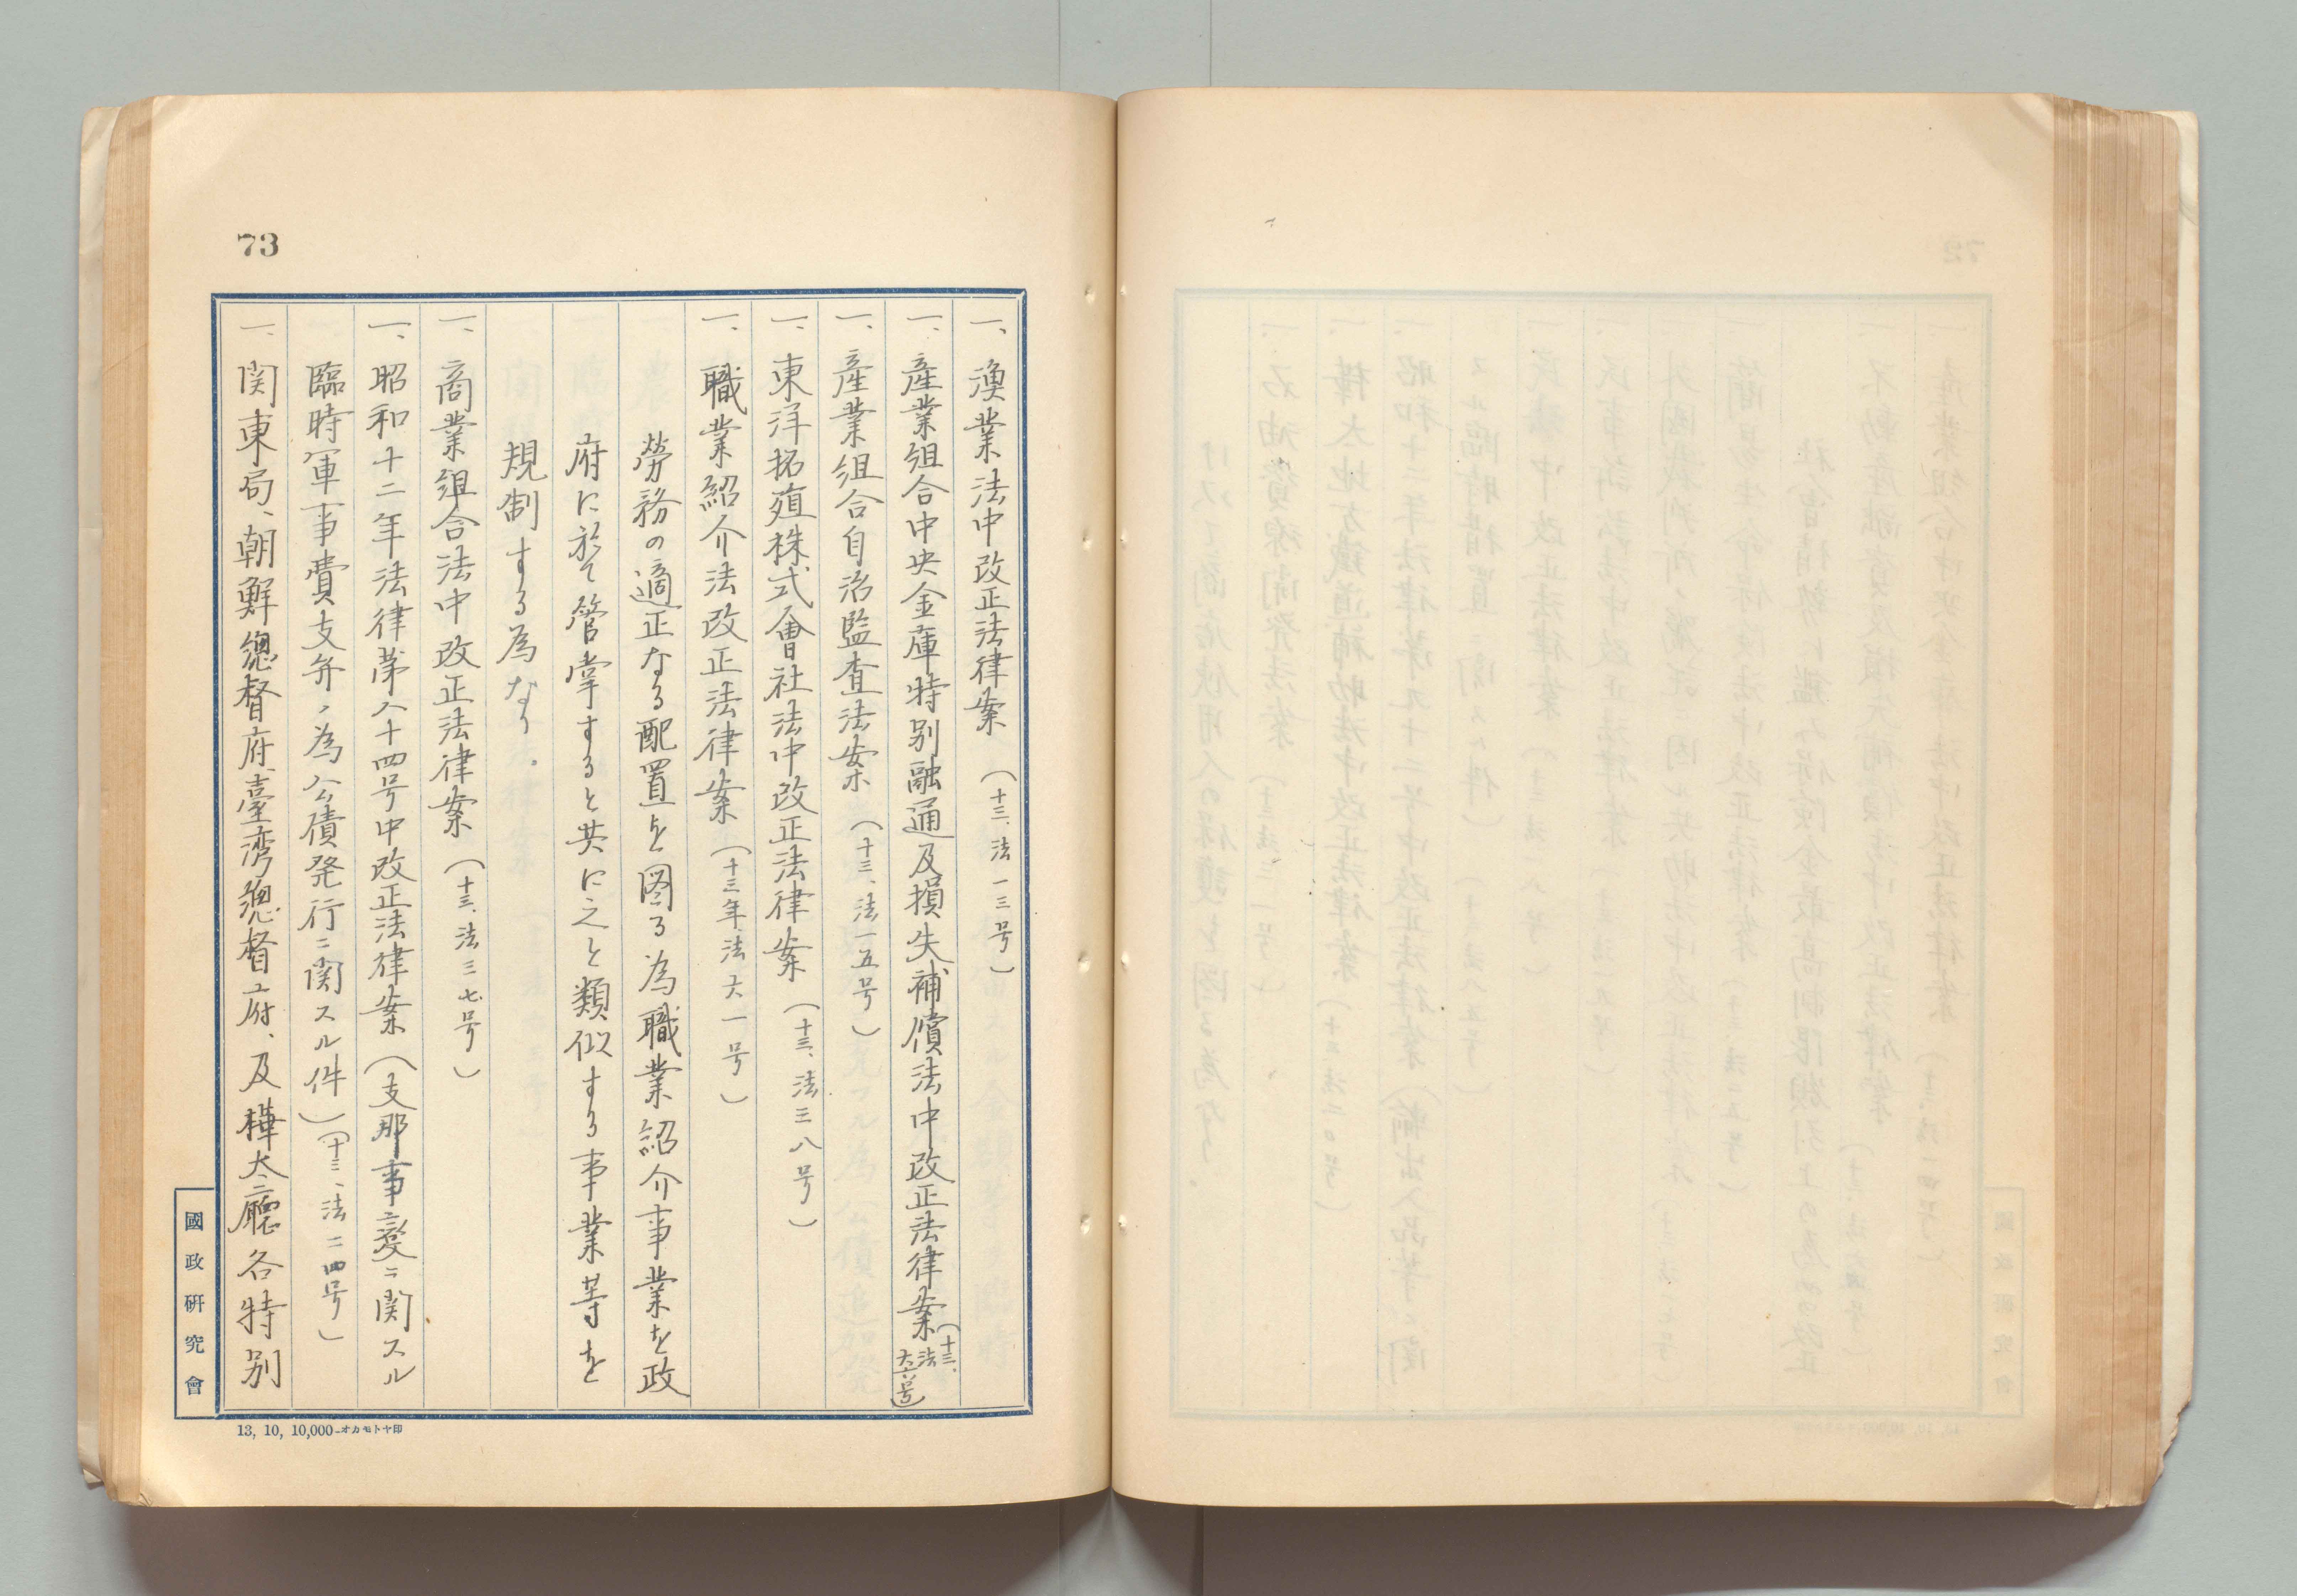 73
一、漁業法中改正法律案（十三、法一三号）
一、産業組合中央金庫特別融通及損失補償法中改正法律案（十三、法六六号）
一、産業組合自治監査法案（十三、法一五号）
一、東洋拓殖株式會社法中改正法律案（十三、法三八号）
一、職業紹介法改正法律案（十三年、法六一号）
勞務の適正なる配置を図る為職業紹介事業を政
府に於て管掌すると共に之と類似する事業等を
規制する為なり。
一、商業組合法中改正法律案（十三、法三七号）
一、昭和十二年法律第八十四号中改正法律案（支那事変ニ関スル
臨時軍事費支弁ノ為公債発行ニ関スル件）（十三、法二四号）
一、関東局、朝鮮總督府、臺湾總督府、及樺太廳各特別
國政硏究會
13, 10, 10,000-オカモトヤ印